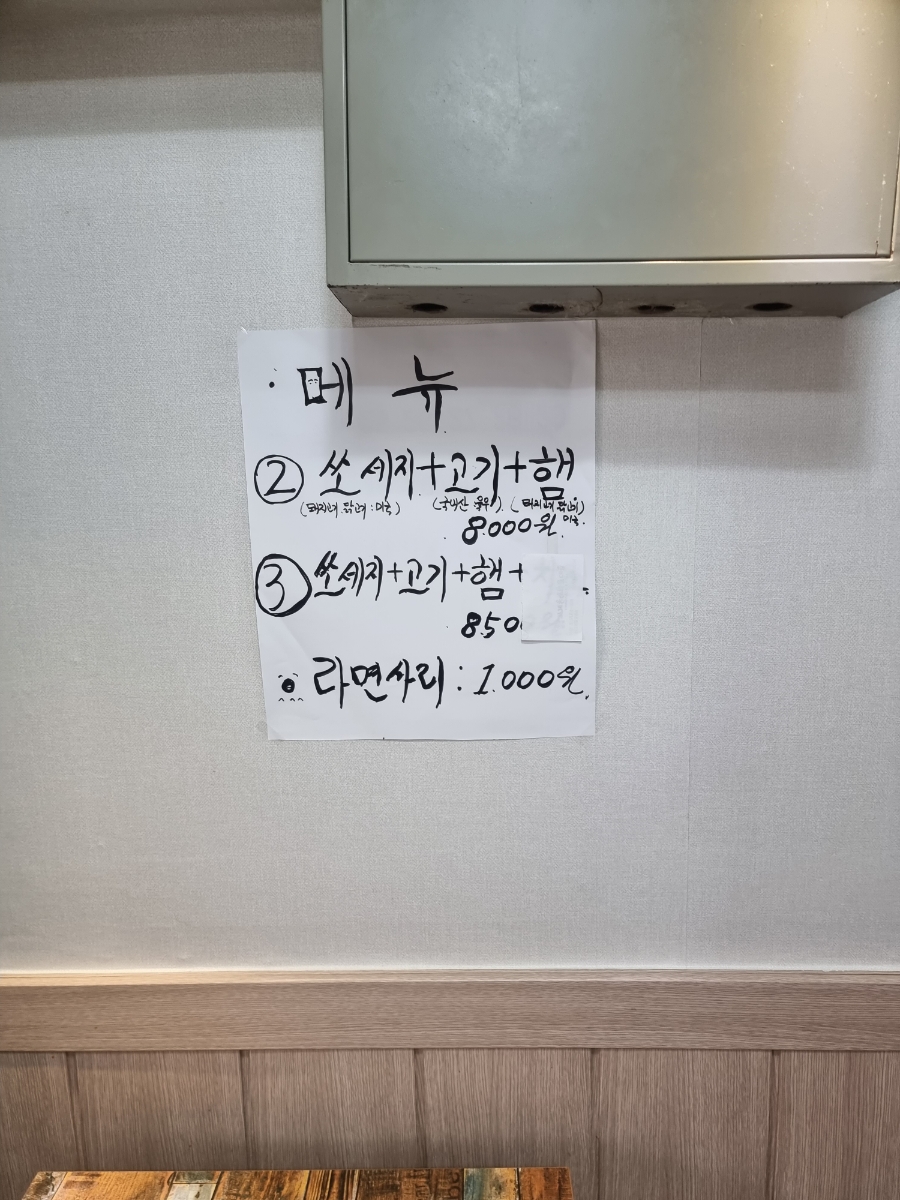 · 메 뉴
② 쏘세지+고기+햄
(돼지고기 닭고기 : 미국) (국내산 육우) (돼지고기 닭고기) 미국.
8.000원.
③ 쏘세지+고기+햄+
850
라면사리 : 1.000원.